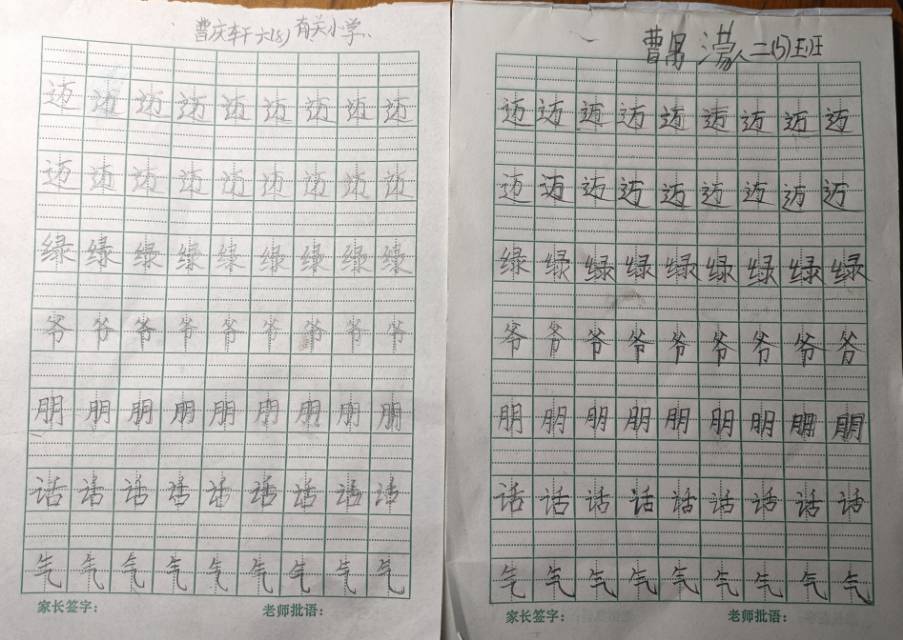 曹庆轩 六(3) 育关小学
迈迈迈迈迈迈迈迈迈
迈迈迈迈迈迈迈迈迈
绿绿绿绿绿绿绿绿绿
爷爷爷爷爷爷爷爷爷
朋朋朋朋朋朋朋朋朋
话话话话话话话话话
气气气气气气气气气
家长签字: 老师批语:
曹 二(5)班
迈迈迈迈迈迈迈迈迈
迈迈迈迈迈迈迈迈迈
绿绿绿绿绿绿绿绿绿
爷爷爷爷爷爷爷爷爷
朋朋朋朋朋朋朋朋朋
话话话话话话话话话
气气气气气气气气气
家长签字: 老师批语: